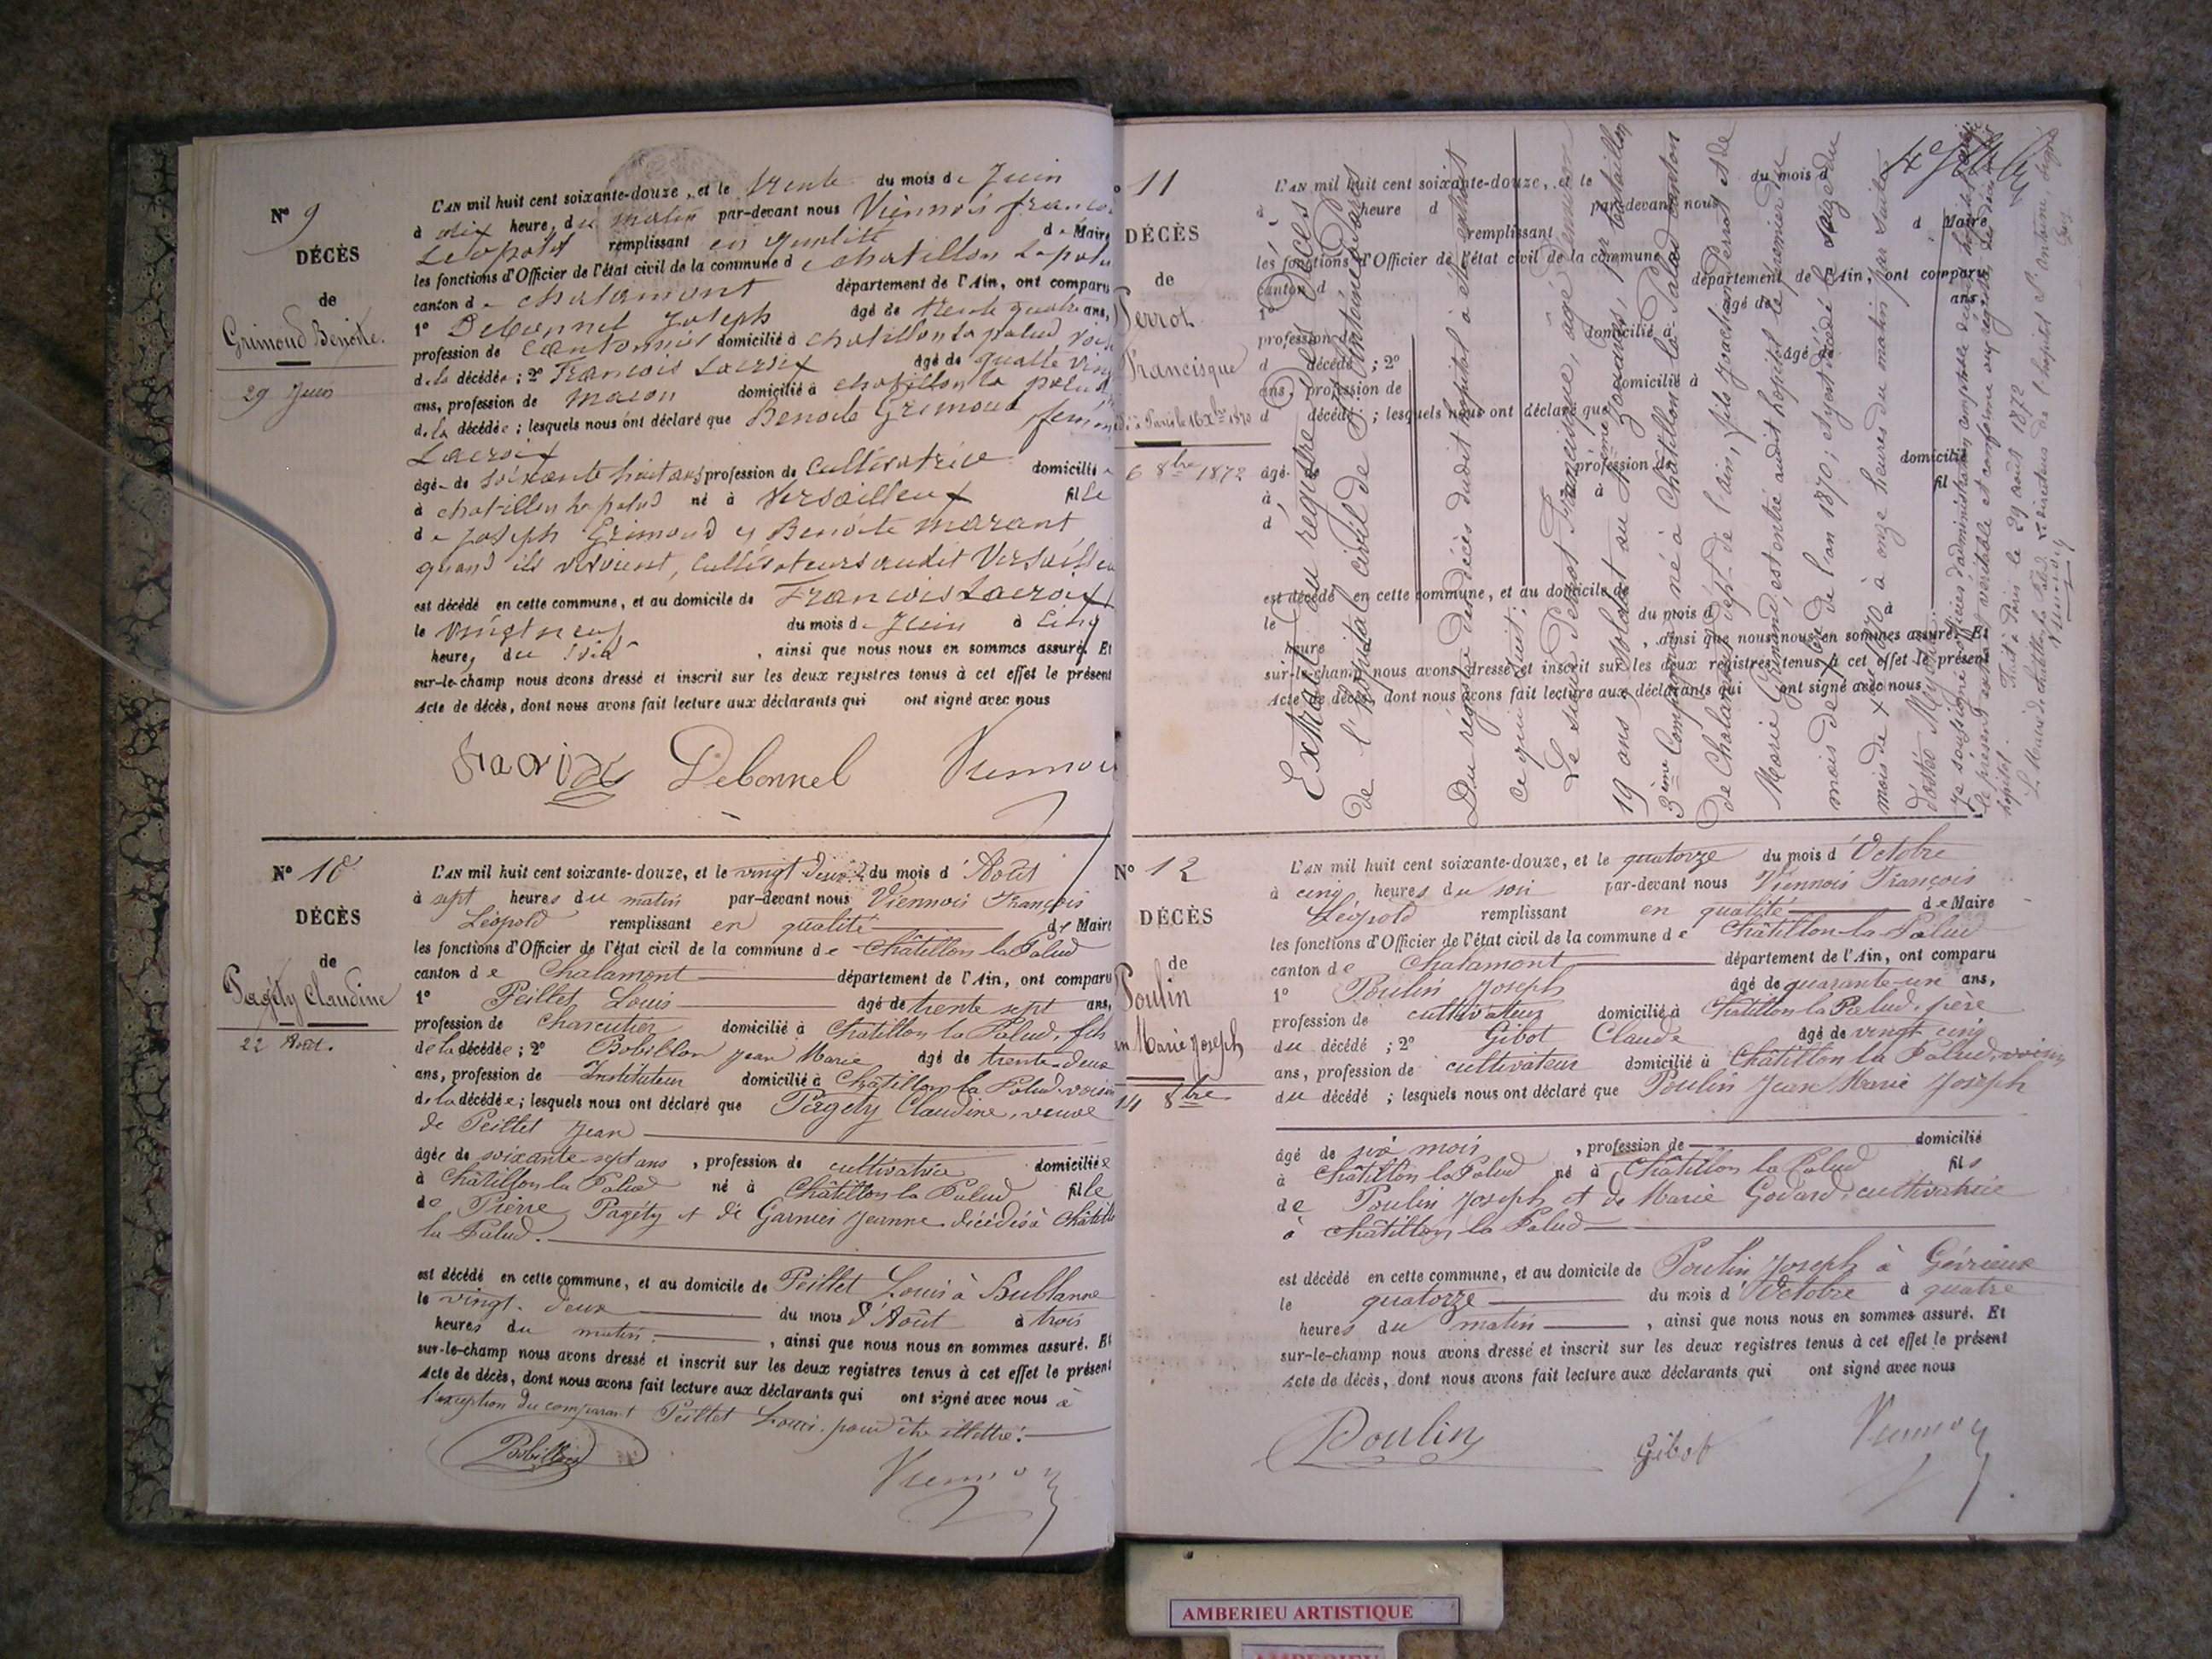 N° 9
DÉCÈS
de
Grimoud Benoite.
29 Juin
L'AN mil huit cent soixante-douze, et le trente du mois de Juin
à dix heure, du matin par-devant nous Viennois
Léopold remplissant en qualité de Maire
les fonctions d'Officier de l'état civil de la commune de chatillon la palu
canton de chalamont département de l'Ain, ont comparu
1° Debonnel Joseph âgé de trente quatre ans,
profession de Cantonnier domicilié à chatillon la palud
de la décédée ; 2° François Lacroix âgé de quatre ving
ans, profession de macon domicilié à chatillon la palud
de la décédée ; lesquels nous ont déclaré que Benoite Grimoud
Lacroix
âgé de soixante huit ans profession de Cultivatrice domicilié
à chatillon la palud né à Versailleux fille
de Joseph Grimoud et Benoite marant
quand ils vivoient, Cultivateurs audit
est décédé en cette commune, et au domicile de François Lacroix
le vingt neuf du mois de Juin à Cinq
heure, du , ainsi que nous nous en sommes assuré. Et
sur-le-champ nous avons dressé et inscrit sur les deux registres tenus à cet effet le présent
Acte de décès, dont nous avons fait lecture aux déclarants qui ont signé avec nous
Debonnel
N° 10
DÉCÈS
de
Pagéty Claudine
22 Août.
L'AN mil huit cent soixante-douze, et le vingt deux du mois d'Août
à sept heures du matin par-devant nous Viennois François
Léopold remplissant en qualité de Maire
les fonctions d'Officier de l'état civil de la commune de Châtillon la Palud
canton de Chalamont département de l'Ain, ont comparu
1° Peillet Louis âgé de trente sept ans,
profession de Charcutier domicilié à Châtillon la Palud, fils
de la décédée ; 2° Bobillon Jean Marie âgé de trente-deux
ans, profession de Instituteur domicilié à Châtillon la Palud voisin
de la décédée ; lesquels nous ont déclaré que Pagéty Claudine, veuve
de Peillet Jean
âgée de soixante sept ans, profession de cultivatrice domiciliée
à Châtillon la Palud né à Châtillon la Palud fille
de Pierre Pagéty et de Garnier Jeanne décédés à
la Palud.
est décédé en cette commune, et au domicile de Peillet Louis à Bublanne
le vingt-deux du mois d'Août à trois
heures du matin, ainsi que nous nous en sommes assuré. Et
sur-le-champ nous avons dressé et inscrit sur les deux registres tenus à cet effet le présent
Acte de décès, dont nous avons fait lecture aux déclarants qui ont signé avec nous à
l'exception du comparant Peillet Louis pour être illettré.
Bobillon
11
DÉCÈS
de
Perrot
Francisque
à Paris le 16 Xbre 1870
6 8bre 1872
L'AN mil huit cent soixante-douze, et le du mois d
à heure d par-devant nous
remplissant d Maire
les fonctions d'Officier de l'état civil de la commune
canton d département de l'Ain, ont comparu
1° âgé de ans
profession d domicilié à
d décédé ; 2° âgé de
ans, profession de domicilié à
d décédé ; lesquels nous ont déclaré que
âgé de profession de domicilié
à à fil
d
est décédé en cette commune, et au domicile de
le du mois d à
heure , ainsi que nous nous en sommes assuré. Et
sur-le-champ nous avons dressé et inscrit sur les deux registres tenus à cet effet le présent
Acte de décès, dont nous avons fait lecture aux déclarants qui ont signé avec nous
Extrait du registre des Décès
de l'hopital civil de St Antoine, Paris
Du registre des décès dudit hopital a été extrait
ce qui suit:
Le sieur Perrot Francisque, âgé
19 ans, soldat au 4ème Zouaves, 1er bataillon
3ème Compagnie né à Châtillon la Palud canton
de Chalamont dept de l'ain, fils Joachim Perrot et de
Marie Grimand, est entré audit hopital le premier du
mois de Xbre de l'an 1870; et y est décédé le seize du
mois de Xbre 1870 à onze heures du matin par suite
le présent extrait véritable et conforme au registre de décès
hopital. Fait à Paris le 29 août 1872
N° 12
DÉCÈS
de
Poulin
Marie Joseph
14 8bre
L'AN mil huit cent soixante-douze, et le quatorze du mois d'Octobre
à cinq heures du soir par-devant nous Viennois François
Léopold remplissant en qualité de Maire
les fonctions d'Officier de l'état civil de la commune de Châtillon-la-Palud
canton de Chalamont département de l'Ain, ont comparu
1° Poulin Joseph âgé de quarante-un ans,
profession de cultivateur domicilié à Châtillon la Palud, père
du décédé ; 2° Gibot Claude âgé de vingt cinq
ans, profession de cultivateur domicilié à Châtillon la Palud, voisin
du décédé ; lesquels nous ont déclaré que Poulin Jean Marie Joseph
âgé de six mois, profession de domicilié
à Châtillon la Palud né à Châtillon la Palud fils
de Poulin Joseph et de Marie Godard, cultivatrice
à Châtillon la Palud
est décédé en cette commune, et au domicile de Poulin Joseph à Gévrieux
le quatorze du mois d'Octobre à quatre
heures du matin, ainsi que nous nous en sommes assuré. Et
sur-le-champ nous avons dressé et inscrit sur les deux registres tenus à cet effet le présent
Acte de décès, dont nous avons fait lecture aux déclarants qui ont signé avec nous
Poulin Gibot
AMBERIEU ARTISTIQUE
AMBERIEU